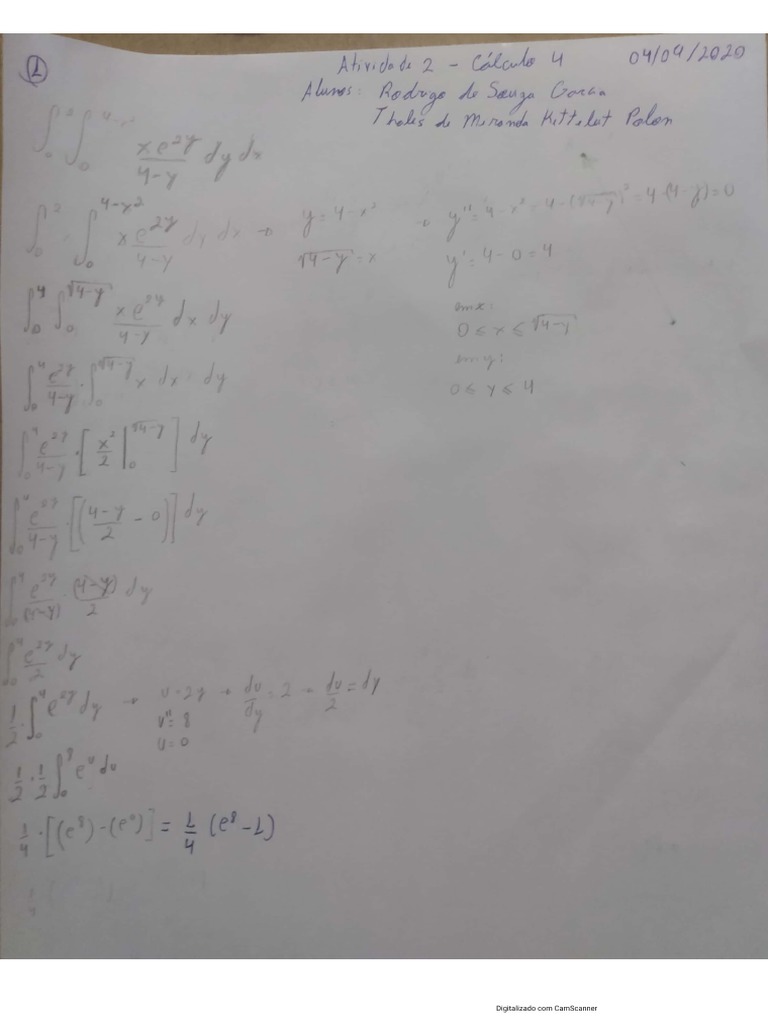 1 Atividade 2 - Cálculo 4 04/09/2020
Alunos: Rodrigo de Souza Garcia
Thales de Miranda Kittelut Polon
∫₀² ∫₀^(4-x²) xe^(2y)/(4-y) dy dx
∫₀² ∫₀^(4-x²) xe^(2y)/(4-y) dy dx → y = 4-x² → y'' = 4-x² = 4-(√(4-y))² = 4-(4-y) = 0
√(4-y) = x y' = 4-0 = 4
∫₀⁴ ∫₀^√(4-y) xe^(2y)/(4-y) dx dy
em x:
0 ≤ x ≤ √(4-y)
em y:
0 ≤ y ≤ 4
∫₀⁴ e^(2y)/(4-y) · ∫₀^√(4-y) x dx · dy
∫₀⁴ e^(2y)/(4-y) · [x²/2 |₀^√(4-y)] dy
∫₀⁴ e^(2y)/(4-y) · [((4-y)/2 - 0)] dy
∫₀⁴ e^(2y)/(4-y) · (4-y)/2 dy
∫₀⁴ e^(2y)/2 dy
1/2 · ∫₀⁴ e^(2y) dy → u = 2y → du/dy = 2 → du/2 = dy
u'' = 8
u = 0
1/2 · 1/2 ∫₀⁸ e^u du
1/4 · [(e⁸) - (e⁰)] = 1/4 (e⁸ - 1)
Digitalizado com CamScanner